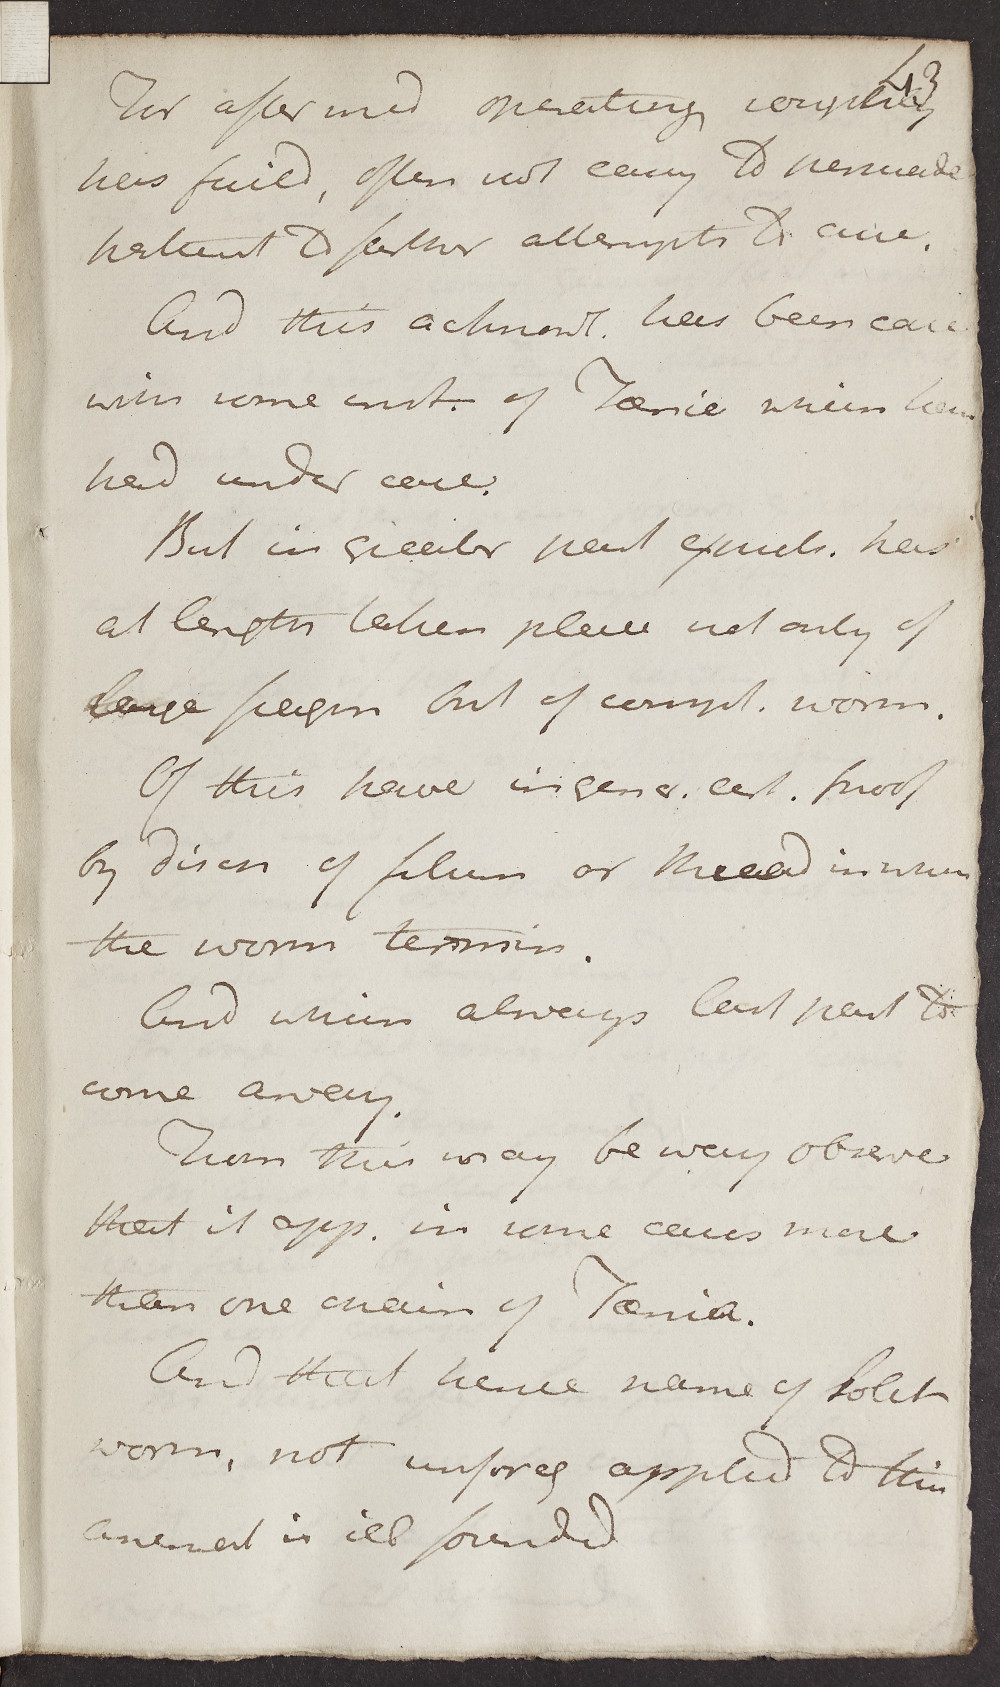 43
For after med operating roughly
has faild, often not easy to persuade
patient to farther attempts to cure.
And this acknowl. has been case
with some inst. of Tænia which have
had under care.
But in greater part expuls. has
at length taken place not only of
large fragm but of compl. worm.
Of this have in gener. cert. proof
by discov of filum or thread in which
the worm termin.
And which always last part to
come away.
From this may by way observe
that it app. in some cases more
than one chain of Tænia.
And that hence name of Solit
worm, not unfreq applied to this
animal is ill founded